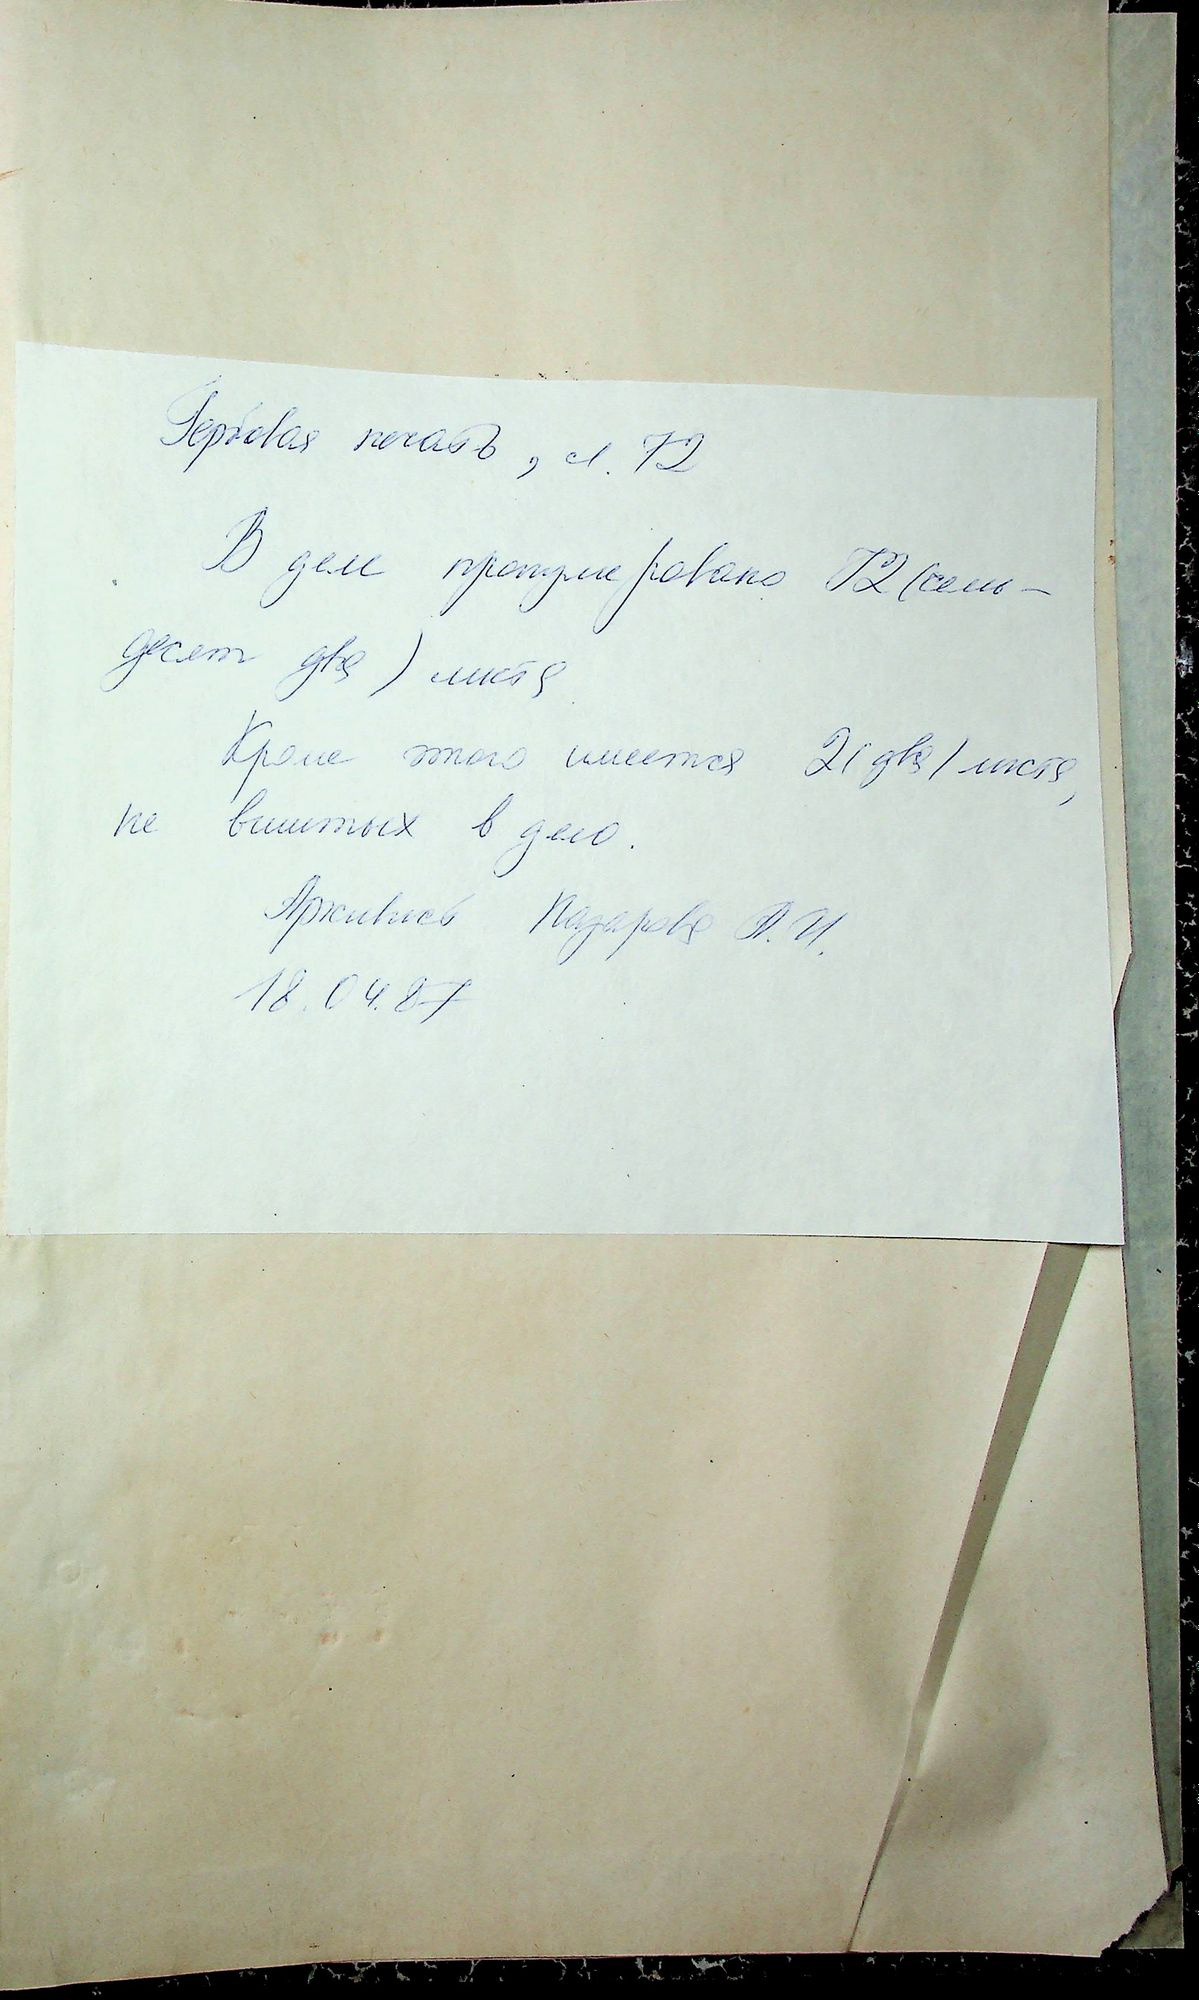 Гербовая печать, л. 72
В деле пронумеровано 72 (семь-
десят два) листа
Кроме этого имеется 2 (два) листа,
не вшитых в дело.
Архивист Назарова А.И.
18.04.87